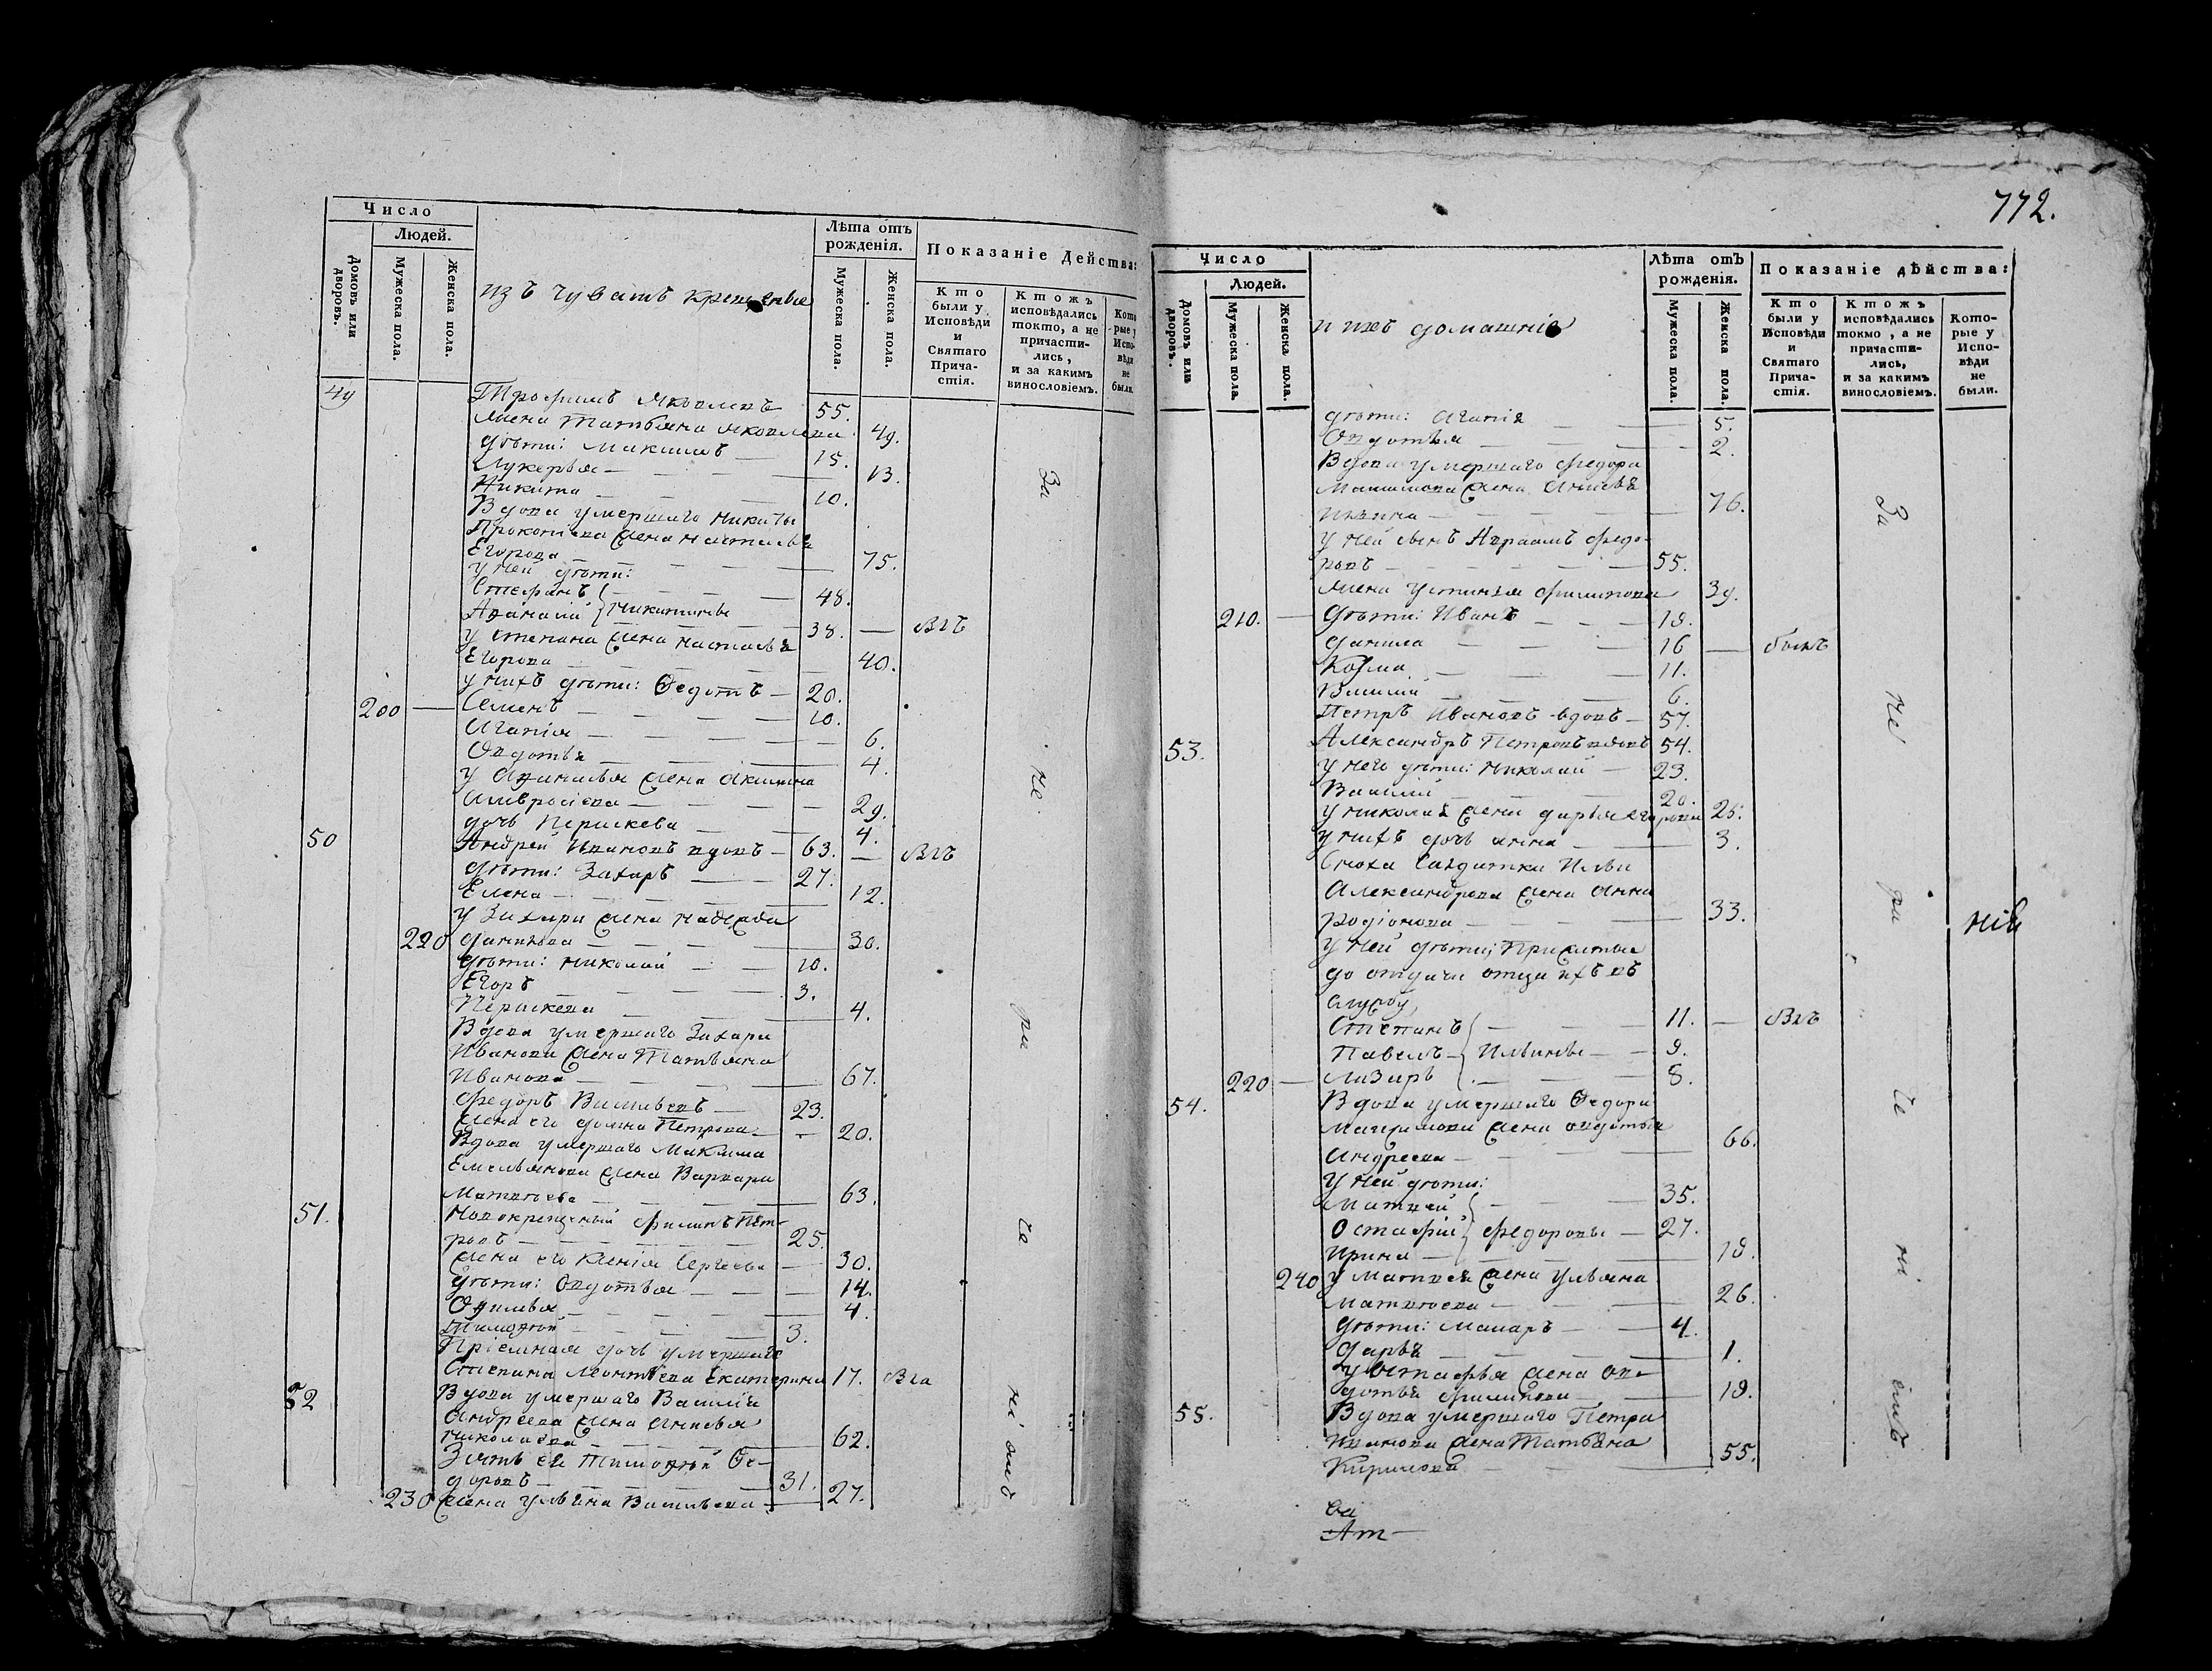 Число
Людей.
Домовъ или дворовъ.
Мужеска пола.
Женска пола.
изъ чувашъ крещеные
Лѣта отъ рожденія.
Мужеска пола.
Женска пола.
Показаніе Действа:
Кто были у Исповѣди и Святаго Причастія.
Ктожъ исповѣдались токто, а не причастились, и за какимъ винословіемъ.
Кото-рые у Испо-вѣди не были.
49 Трофимъ Яковлевъ 55.
жена Татьяна Яковлева 49.
дѣти: Максимъ — 15.
Лукерья — 13.
Никита — 10.
Вдова умершаго Никиты
Прокопьева жена Настасья
Егорова — 75.
у ней дѣти:
Стефанъ — 48.
Афанасій } Никитины — 38. — Былъ
у Степана жена Настасья
Егорова — 40.
у нихъ дѣти: Федотъ — 20.
200 — Семенъ — 10.
Агапія — 6.
Овдотья — 4.
у Афанасья жена Акилина
Амвросіева — 29.
дочь Параскева — 4.
50 Андрей Ивановъ вдовъ — 63. — Былъ
дѣти: Захаръ — 27.
Елена — 12.
у Захара жена Надежда
220 Данилова — 30.
дѣти: Николай — 10.
Егоръ — 3.
Параскева — 4.
Вдова умершаго Захара
Иванова жена Татьяна
Иванова — 67.
Федоръ Васильевъ — 23.
жена его Домна Петрова — 20.
Вдова умершаго Максима
Емельянова жена Варвара
Матвѣева — 63.
51. Новокрещеный Филипъ Пет-
ровъ — 25.
жена его Ксенія Сергѣева — 30.
дѣти: Овдотья — 14.
— 4.
Тимофей — 3.
Пріемная дочь умершаго
Степана Леонтьева Екатерина 17. Была
52 Вдова умершаго Василія
Андреева жена Анисья
Николаева — 62.
Зять ея Тимофей Фе-
доровъ — 31.
230 жена Ульяна Васильева — 27.
За не ра че ні емъ
772.
Число
Людей.
Домовъ или дворовъ.
Мужеска пола.
Женска пола.
и ихъ домашніе
Лѣта отъ рожденія.
Мужеска пола.
Женска пола.
Показаніе дѣйства:
Кто были у Исповѣди и Святаго Причастія.
Ктожъ исповѣдались токмо, а не причастились, и за какимъ винословіемъ.
Кото-рые у Испо-вѣди не были.
дѣти: Агапія — 5.
Овдотья — 2.
Вдова умершаго Федора
жена Анисья
— 76.
у ней сынъ Авраамъ Федо-
ровъ — 55.
жена Устинья Филипова 39.
210. — дѣти: Иванъ — 19.
Данила — 16 — былъ
Козма — 11.
Василій — 6.
Петръ Ивановъ вдовъ — 57.
53. Александръ Петровъ вдовъ 54.
у него дѣти: Николай — 23.
Василій — 20.
у Николая жена Дарья Егорова 25.
у нихъ дочь Анна — 3.
Сноха Салдатка Ильи
Александрова жена Анна
Родіонова — 33.
у ней дѣти; Прижитые
до отдачи отца ихъ въ
службу,
Степанъ — 11. — Былъ
Павелъ } Ильины — 9.
220 — Лазаръ — 8.
54. Вдова умершаго Федора
жена Овдотья
Андреева — 66.
у ней дѣти:
Матвей — 35.
Остафій } Федоровы — 27.
Ирина — 19.
240 у Матвея жена Ульяна
Матвѣева — 26.
дѣти: Макаръ — 4.
Дарья — 1.
у Остафья жена Ов-
дотья Филипова — 19.
55. Вдова умершаго Петра
Иванова жена Татьяна
Кирилова — 55.
За не ра че ні емъ